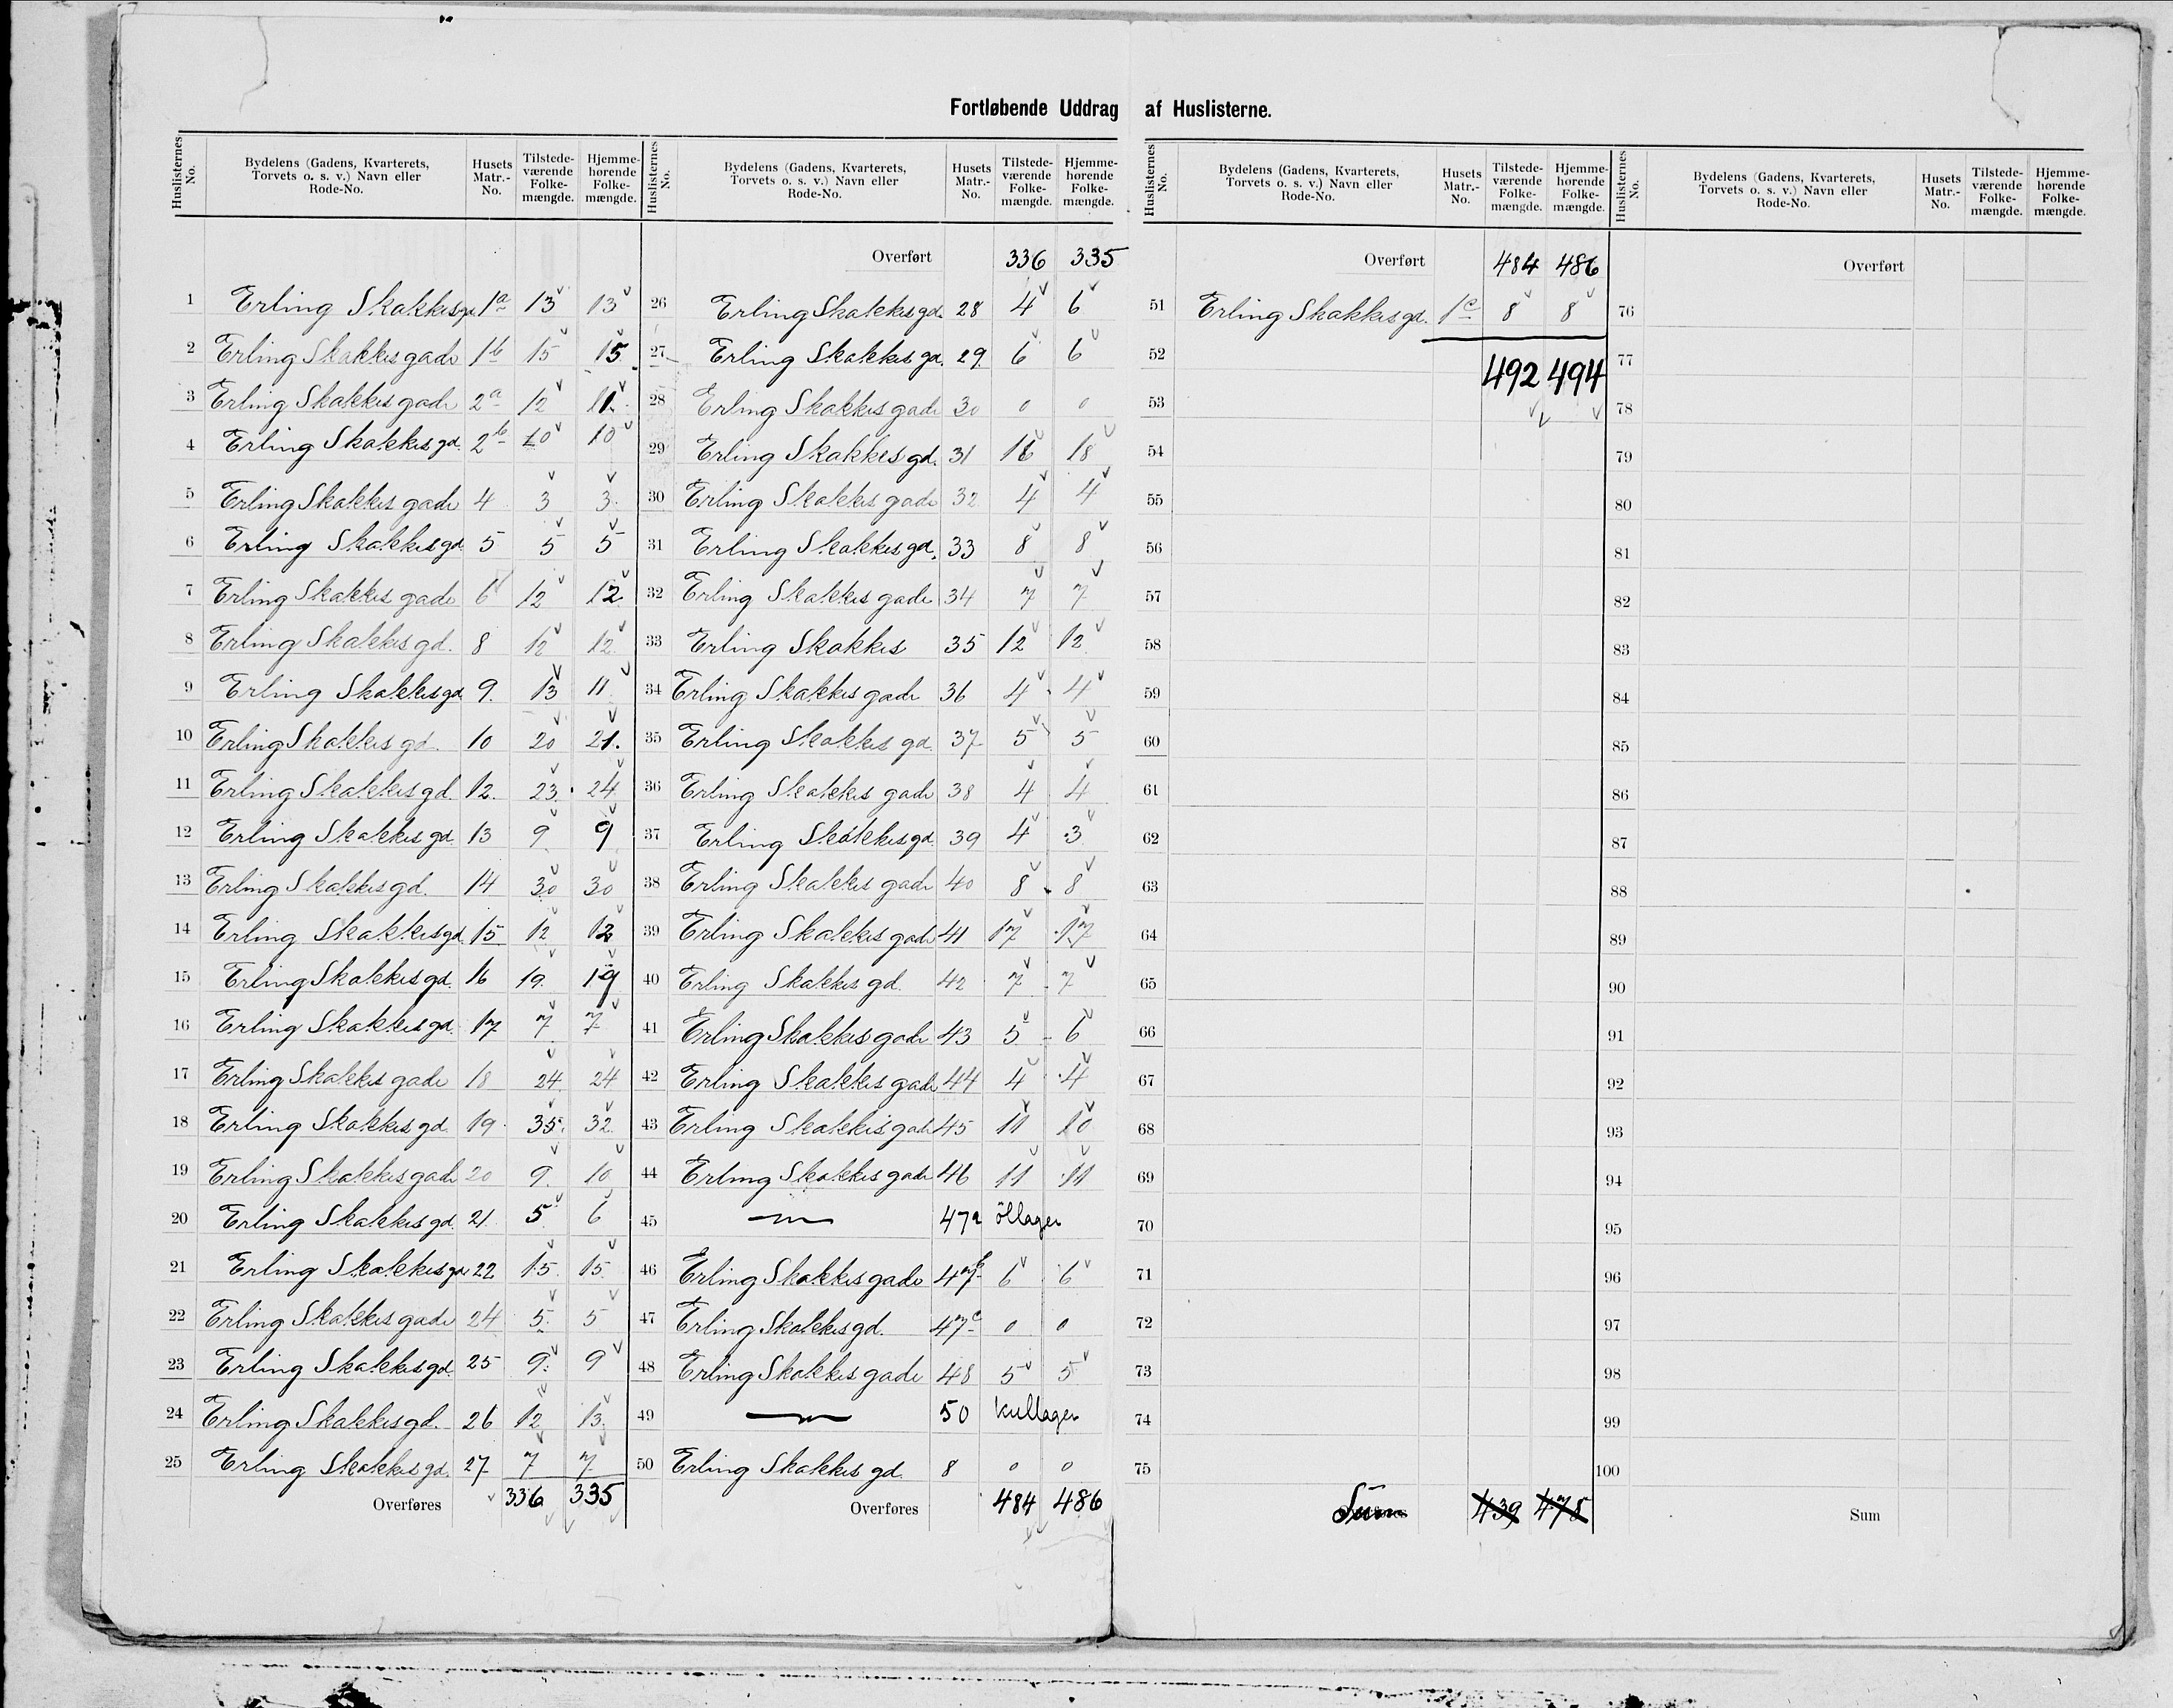 Fortløbende Uddrag af Huslisterne.
Huslisternes No. Bydelens (Gadens, Kvarterets, Torvets o. s. v.) Navn eller Rode-No. Husets Matr.-No. Tilstede-værende Folke-mængde. Hjemme-hørende Folke-mængde.
1 Erling Skakkesgd 1a 13 13
2 Erling Skakkes gade 1b 15 15
3 Erling Skakkes gade 2a 12 11
4 Erling Skakkes gd. 2b 10 10
5 Erling Skakkes gade 4 3 3
6 Erling Skakkes gd 5 5 5
7 Erling Skakkes gade 6 12 12
8 Erling Skakkes gd. 8 12 12
9 Erling Skakkes gd 9. 13 11
10 Erling Skakkes gd. 10 20 21.
11 Erling Skakkes gd. 12. 23. 24
12 Erling Skakkes gd. 13 9 9
13 Erling Skakkes gd. 14 30 30
14 Erling Skakkes gd. 15 12 12
15 Erling Skakkes gd. 16 19. 19
16 Erling Skakkes gd. 17 7 7
17 Erling Skakkes gade 18 24 24
18 Erling Skakkes gd 19. 35. 32
19 Erling Skakkes gade 20 9. 10
20 Erling Skakkes gd. 21. 5 6
21 Erling Skakkes gd 22 15. 15
22 Erling Skakkes gade 24 5. 5
23 Erling Skakkes gd. 25 9. 9
24 Erling Skakkes gd. 26 12 13.
25 Erling Skakkes gd. 27 7 7
Overføres 336 335
Huslisternes No. Bydelens (Gadens, Kvarterets, Torvets o. s. v.) Navn eller Rode-No. Husets Matr.-No. Tilstede-værende Folke-mængde. Hjemme-hørende Folke-mængde.
Overført 336 335
26 Erling Skakkes gd. 28 4 6
27 Erling Skakkes gd. 29 6 6
28 Erling Skakkes gade 30 0 0
29 Erling Skakkes gd. 31 18
30 Erling Skakkes gade 32 4 4
31 Erling Skakkes gd. 33 8 8
32 Erling Skakkes gade 34 7 7
33 Erling Skakkes 35 12 12
34 Erling Skakkes gade 36 4 4
35 Erling Skakkes gd. 37 5 5
36 Erling Skakkes gade 38 4 4
37 Erling Skakkes gd 39 4 3
38 Erling Skakkes gade 40 8 8
39 Erling Skakkes gade 41 17 17
40 Erling Skakkes gd. 42 7 7
41 Erling Skakkes gade 43 5 6
42 Erling Skakkes gade 44 4 4
43 Erling Skakkes gade 45 11 10
44 Erling Skakkes gade 46 11 11
45 — " — 47a öllager
46 Erling Skakkes gade 47b 6 6
47 Erling Skakkes gd. 47c 0 0
48 Erling Skakkes gade 48 5 5
49 — " — 50 kullager
50 Erling Skakkes gd. 8 0 0
Overføres 484 486
Huslisternes No. Bydelens (Gadens, Kvarterets, Torvets o. s. v.) Navn eller Rode-No. Husets Matr.-No. Tilstede-værende Folke-mængde. Hjemme-hørende Folke-mængde.
Overført 484 486
51 Erling Skakkes gd. 1c 8 8
52 492 494
53
54
55
56
57
58
59
60
61
62
63
64
65
66
67
68
69
70
71
72
73
74
75
Sum 439 478
Huslisternes No. Bydelens (Gadens, Kvarterets, Torvets o. s. v.) Navn eller Rode-No. Husets Matr.-No. Tilstede-værende Folke-mængde. Hjemme-hørende Folke-mængde.
Overført
76
77
78
79
80
81
82
83
84
85
86
87
88
89
90
91
92
93
94
95
96
97
98
99
100
Sum